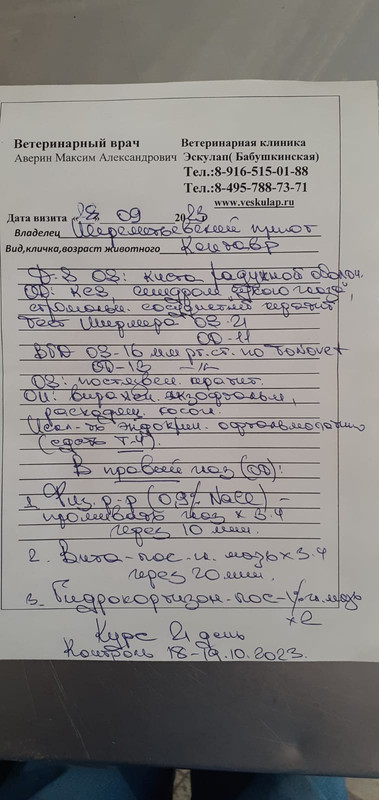 Ветеринарный врач Ветеринарная клиника
Аверин Максим Александрович Эскулап( Бабушкинская)
Тел.:8-916-515-01-88
Тел.:8-495-788-73-71
www.veskulap.ru
Дата визита «28» 09 2023
Владелец Шереметьевский приют
Вид,кличка,возраст животного Кентавр
Д-з OS: киста радужной оболоч.
OD: КСЗ, синдром "сухого глаза",
стромальн. сосудистый кератит
Тест Ширмера OS-21
OD-11
ВГД OS-16 мм рт.ст. по Tonovet
OD-13 -//-
OS: постувеал. кератит.
OU: выражен. экзофтальм,
расходящ. косогл.
Искл-ть эндокрин. офтальмопатию
(сдать Т-4).
В правый глаз (OD):
1. Физ. р-р (0,9% NaCl) -
промывать глаз х 3-4
через 10 мин.
2. Вита-пос г. мазь х 3-4
через 20 мин.
3. Гидрокортизон-пос-1% г. мазь
х2
Курс 21 день
Контроль 18-19.10.2023.